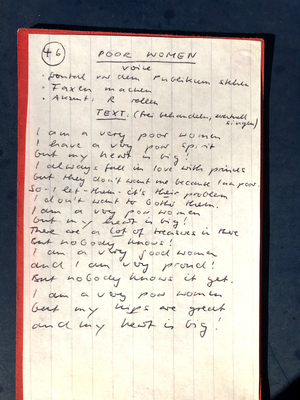 46
POOR WOMEN
voice
- frontal vor dem Publikum stehen
- Faxen machen
- Akzent: R rollen
TEXT: (frei behandeln, eventuell singen)
I am a very poor women
I have a very poor spirit
but my heart is big!
I always fall in love with princes
but they don't want me because I am poor.
So - I let - them - it's their problem
I don't want to bother them.
I am a very poor women
but my heart is big!
There are a lot of treasures in there
but nobody knows!
I am a very good women
and I am very proud!
But nobody knows it yet.
I am a very poor women
but my hips are great
and my heart is big!